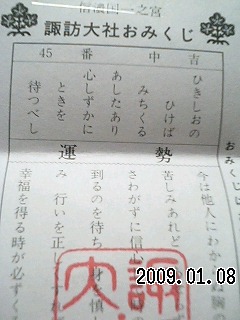 信濃国一之宮
諏訪大社おみくじ
45番 中吉
ひきしおの
ひけば
みちくる
あしたあり
心しずかに
ときを
待つべし
運勢
今は他人にわか
苦しみあれど
さわがずに信心
到るのを待ち
み 行いを正し
幸福を得る時が必ず
おみくじ
2009.01.08